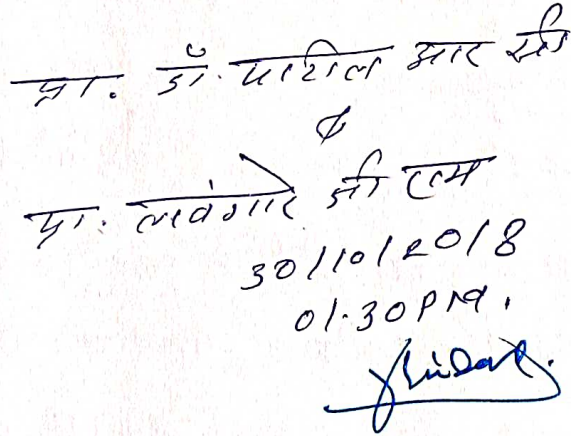 प्रा. डॉ. पाटील आर सी
&
प्रा. लवंगारे जी एम
30/10/2018
01.30 PM.